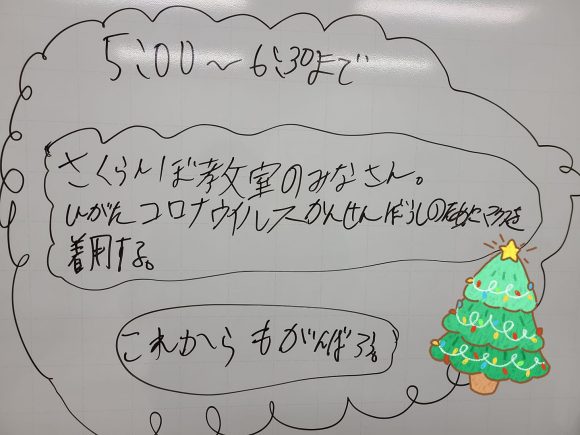 5:00〜6:30まで
さくらんぼ教室のみなさん。
コロナウイルスかんせんぼうしのため
着用する。
これからもがんばろう。